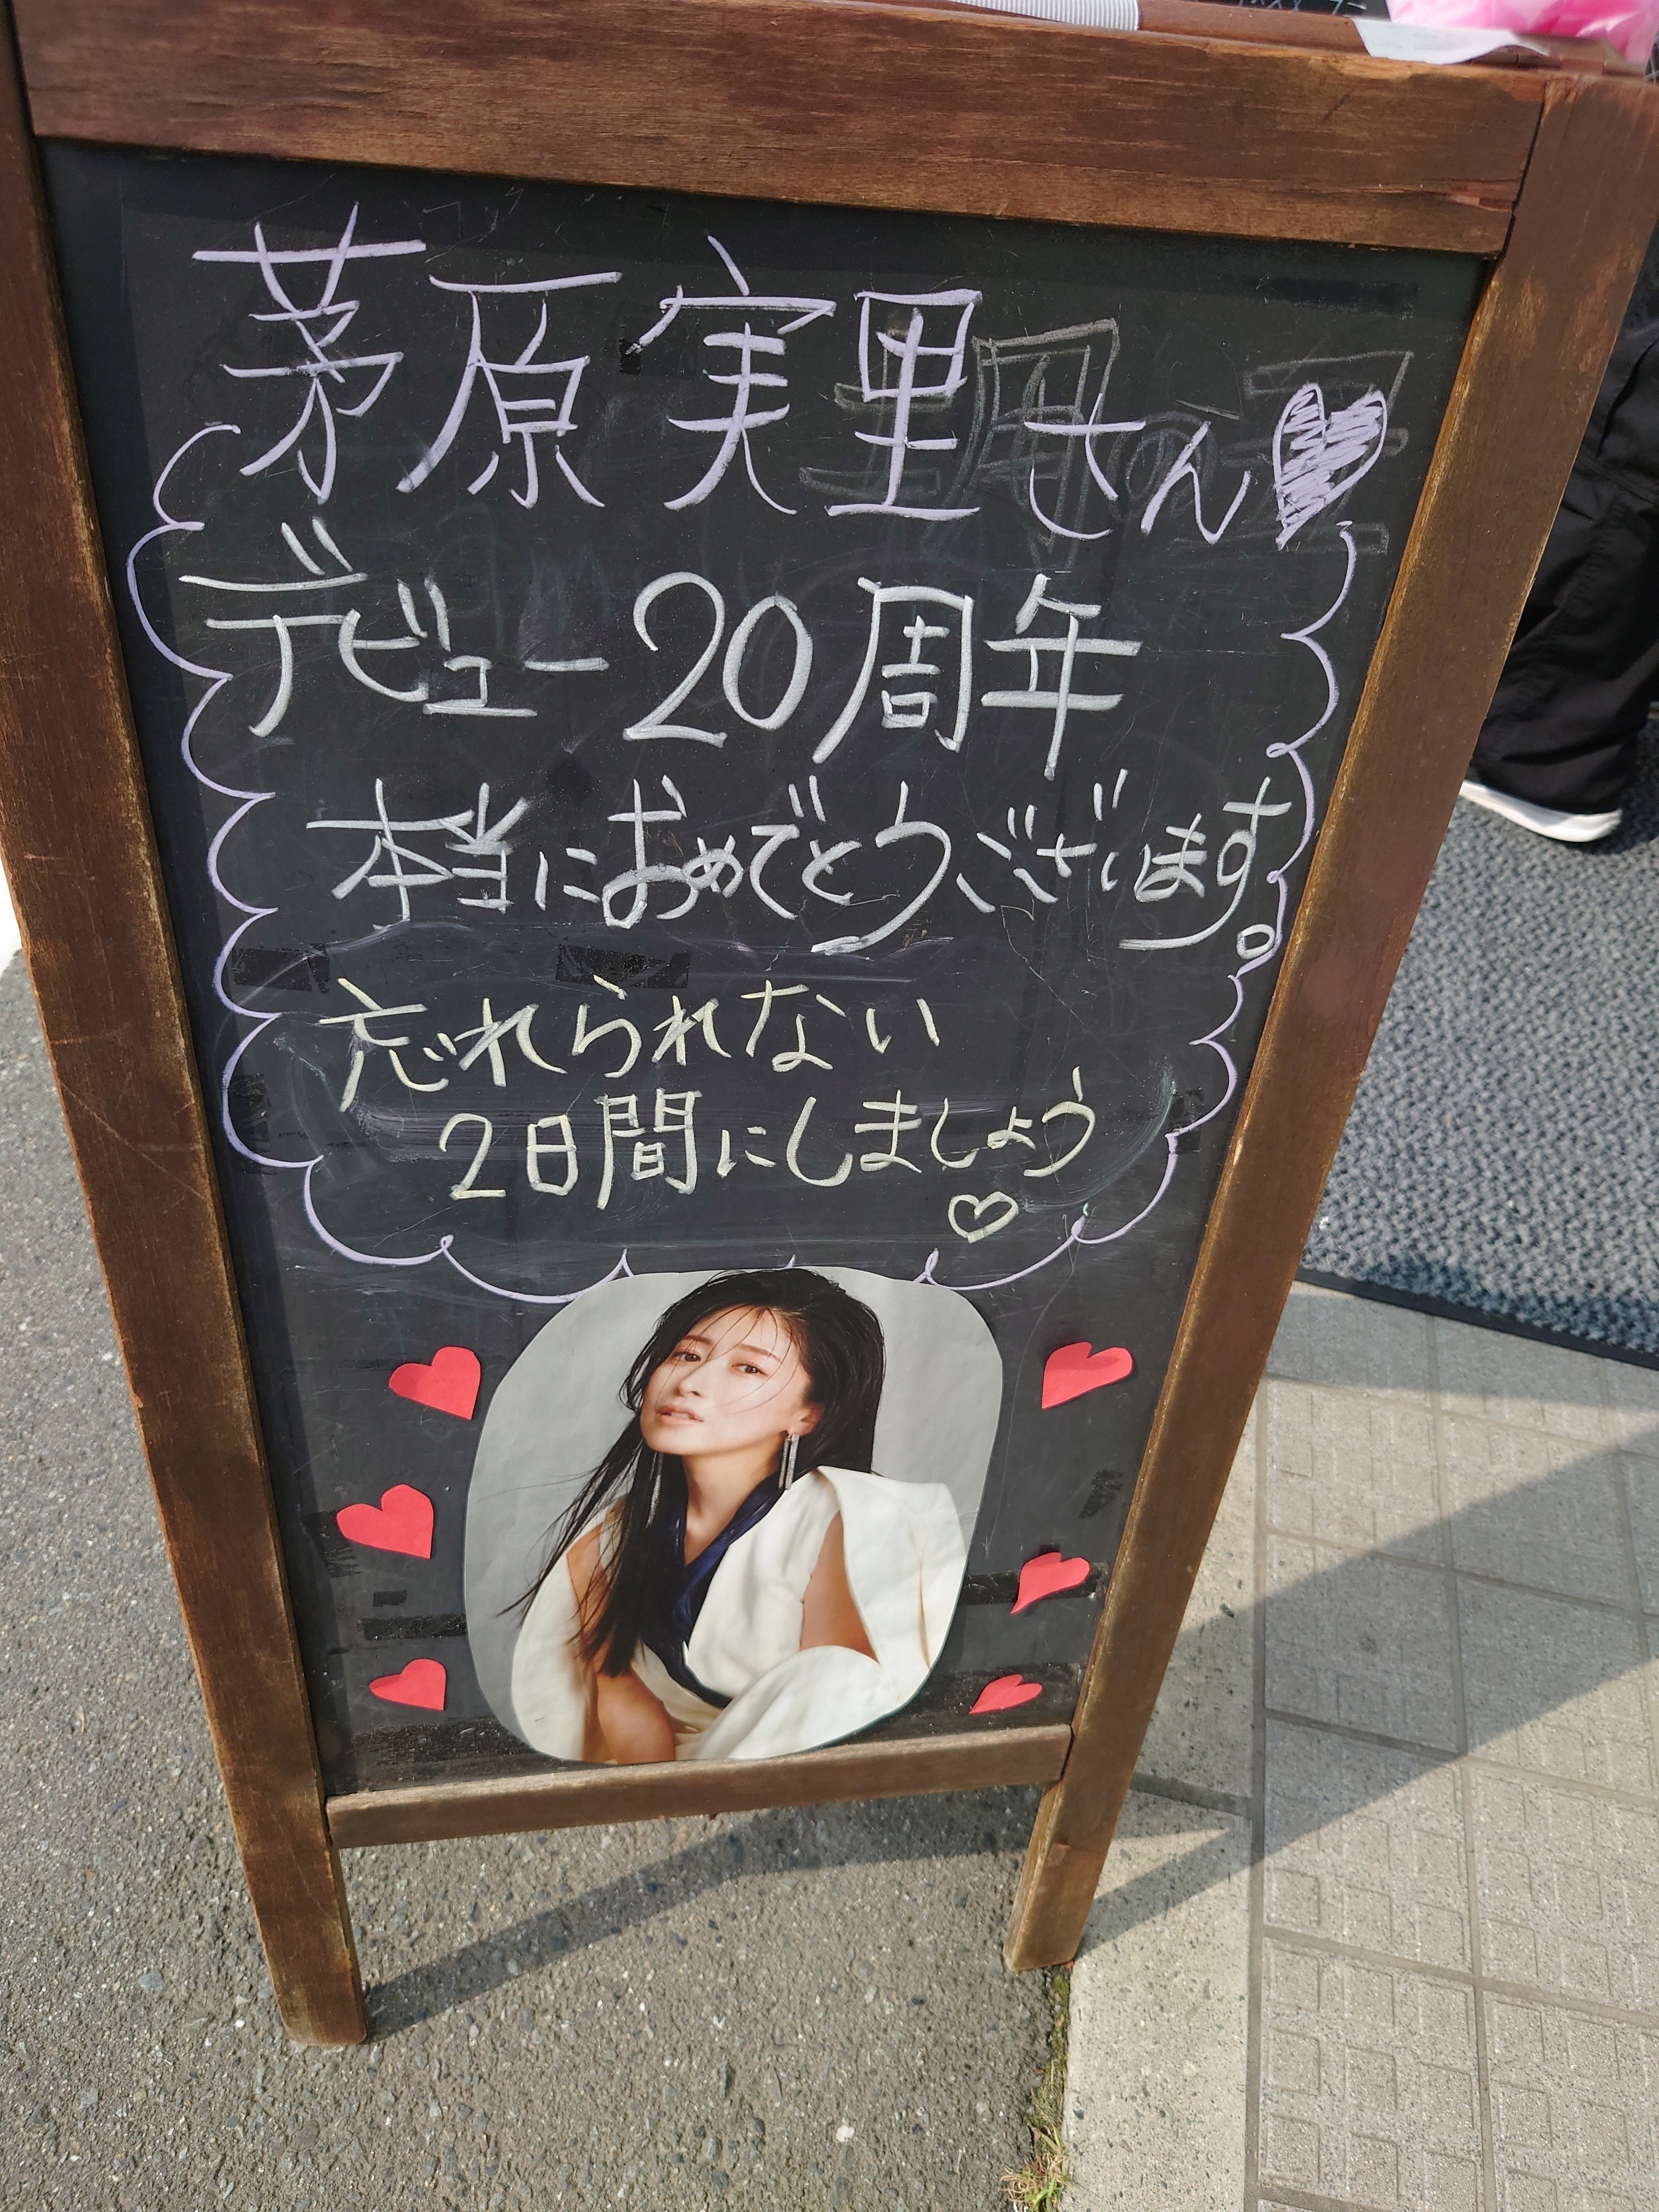 茅原実里さん♥
デビュー20周年
本当におめでとうございます。
忘れられない
2日間にしましょう
♡